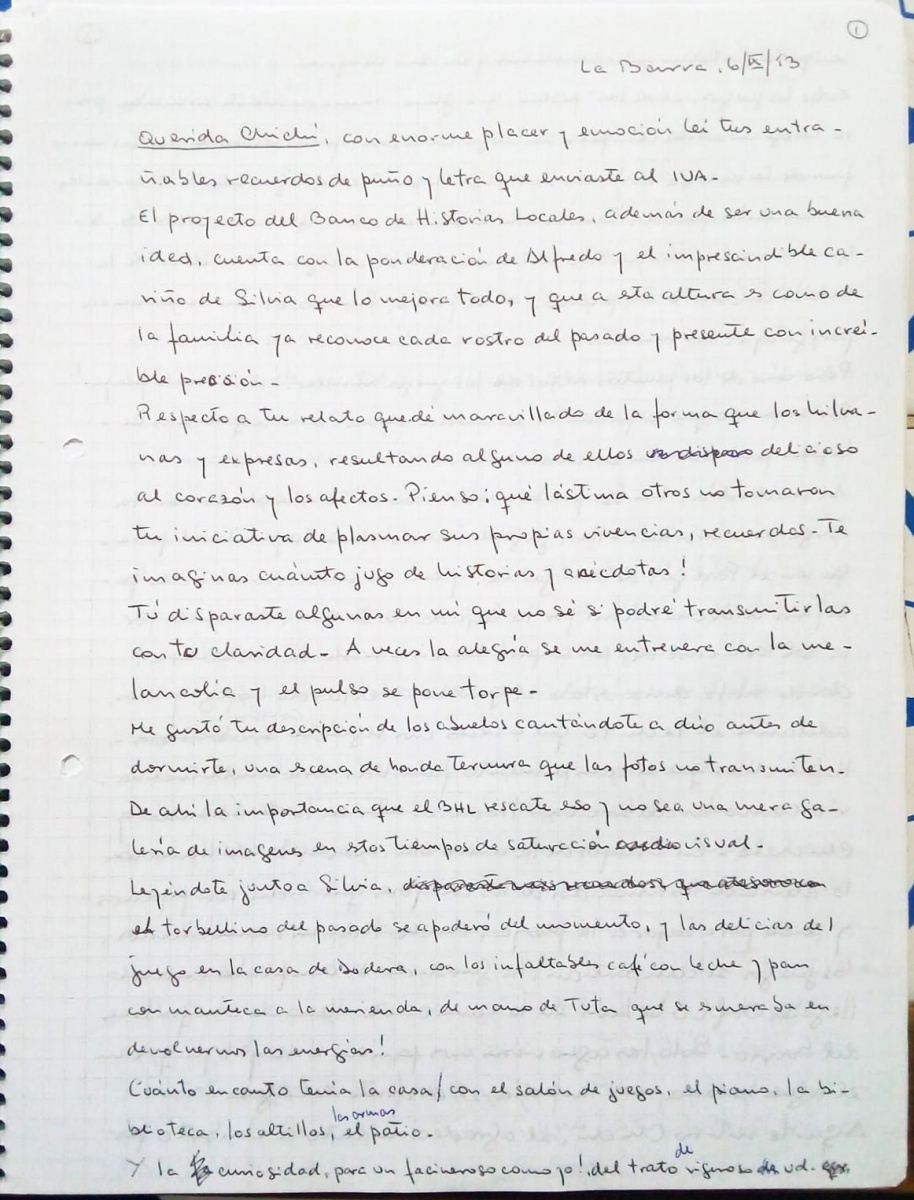 1
La Barra, 6/IX/13
Querida Chichí, con enorme placer y emoción leí tus entra-
ñables recuerdos de puño y letra que enviaste al IUA-
El proyecto del Banco de Historias Locales, además de ser una buena
idea, cuenta con la ponderación de Alfredo y el imprescindible ca-
riño de Silvia que lo mejora todo, y que a esta altura es como de
la familia ya reconoce cada rostro del pasado y presente con increí-
ble precisión-
Respecto a tu relato quedé maravillado de la forma que los hilva-
nas y expresas, resultando alguno de ellos delicioso
al corazón y los afectos- Pienso ¡qué lástima otros no tomaron
tu iniciativa de plasmar sus propias vivencias, recuerdos- Te
imaginas cuánto jugo de historias y anécdotas!
Tú disparaste algunas en mí que no sé si podré transmitirlas
con tu claridad- A veces la alegría se me entrevera con la me-
lancolía y el pulso se pone torpe-
Me gustó tu descripción de los abuelos cantándote a dúo antes de
dormirte, una escena de honda ternura que las fotos no transmiten-
De ahí la importancia que el BHL rescate eso y no sea una mera ga-
lería de imágenes en estos tiempos de saturación visual-
Leyéndote junto a Silvia,
el torbellino del pasado se apoderó del momento, y las delicias del
juego en la casa de Dodera, con los infaltables café con leche y pan
con manteca a la merienda, de mano de Tuta que se esmeraba en
devolvernos las energías!
Cuánto encanto tenía la casa! con el salón de juegos, el piano, la bi-
blioteca, los altillos, las armas, el patio-
Y la curiosidad, para un facineroso como yo!, del trato de riguroso ud.